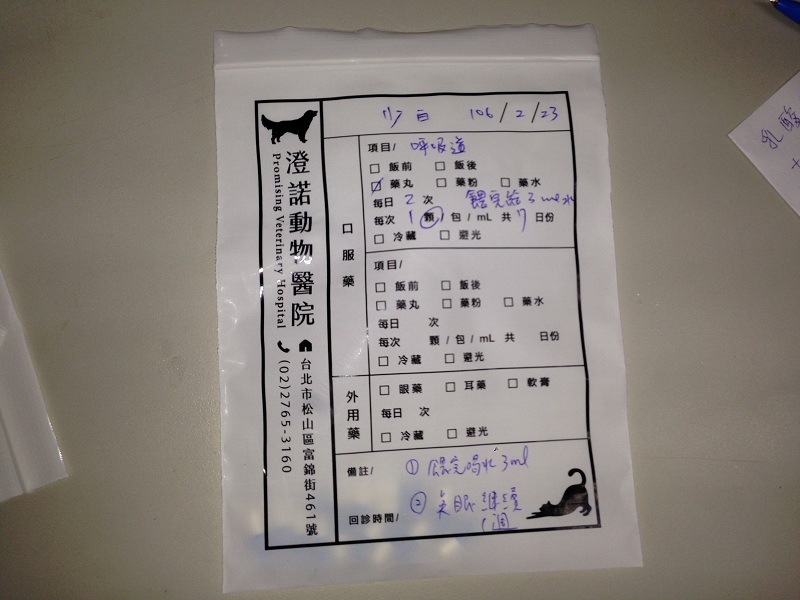 澄諾動物醫院
Promising Veterinary Hospital
台北市松山區富錦街461號
(02)2765-3160
106/2/23
口服藥
項目/ 呼吸道
□ 飯前 □ 飯後
☑ 藥丸 □ 藥粉 □ 藥水
每日 2 次 餵完給3ml水
每次 1 顆 / 包 / mL 共 7 日份
□ 冷藏 □ 避光
項目/
□ 飯前 □ 飯後
□ 藥丸 □ 藥粉 □ 藥水
每日 次
每次 顆 / 包 / mL 共 日份
□ 冷藏 □ 避光
外用藥
□ 眼藥 □ 耳藥 □ 軟膏
每日 次
□ 冷藏 □ 避光
備註/ ① 餵完喝水3ml
② 點眼繼續
1週
回診時間/
乳酸